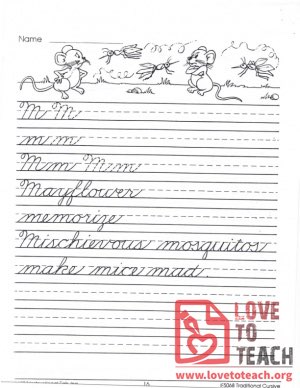 Name
M M
m m
Mm Mm
Mayflower
memorize
Mischievous mosquitos
make mice mad.
LOVE
TO
TEACH
www.lovetoteach.org
16
©5068 Traditional Cursive